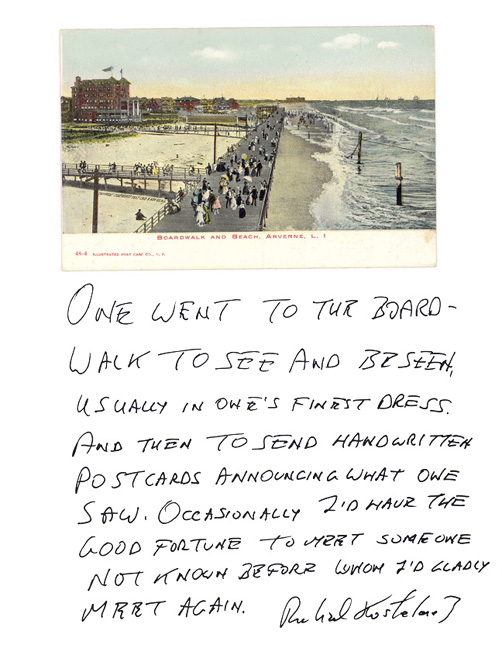 BOARDWALK AND BEACH, ARVERNE, L. I
48-4 ILLUSTRATED POST CARD CO., N. Y.
ONE WENT TO THE BOARD-
WALK TO SEE AND BE SEEN,
USUALLY IN ONE'S FINEST DRESS.
AND THEN TO SEND HANDWRITTEN
POSTCARDS ANNOUNCING WHAT ONE
SAW. OCCASIONALLY I'D HAVE THE
GOOD FORTUNE TO MEET SOMEONE
NOT KNOWN BEFORE WHOM I'D GLADLY
MEET AGAIN. Richard Kostelanetz